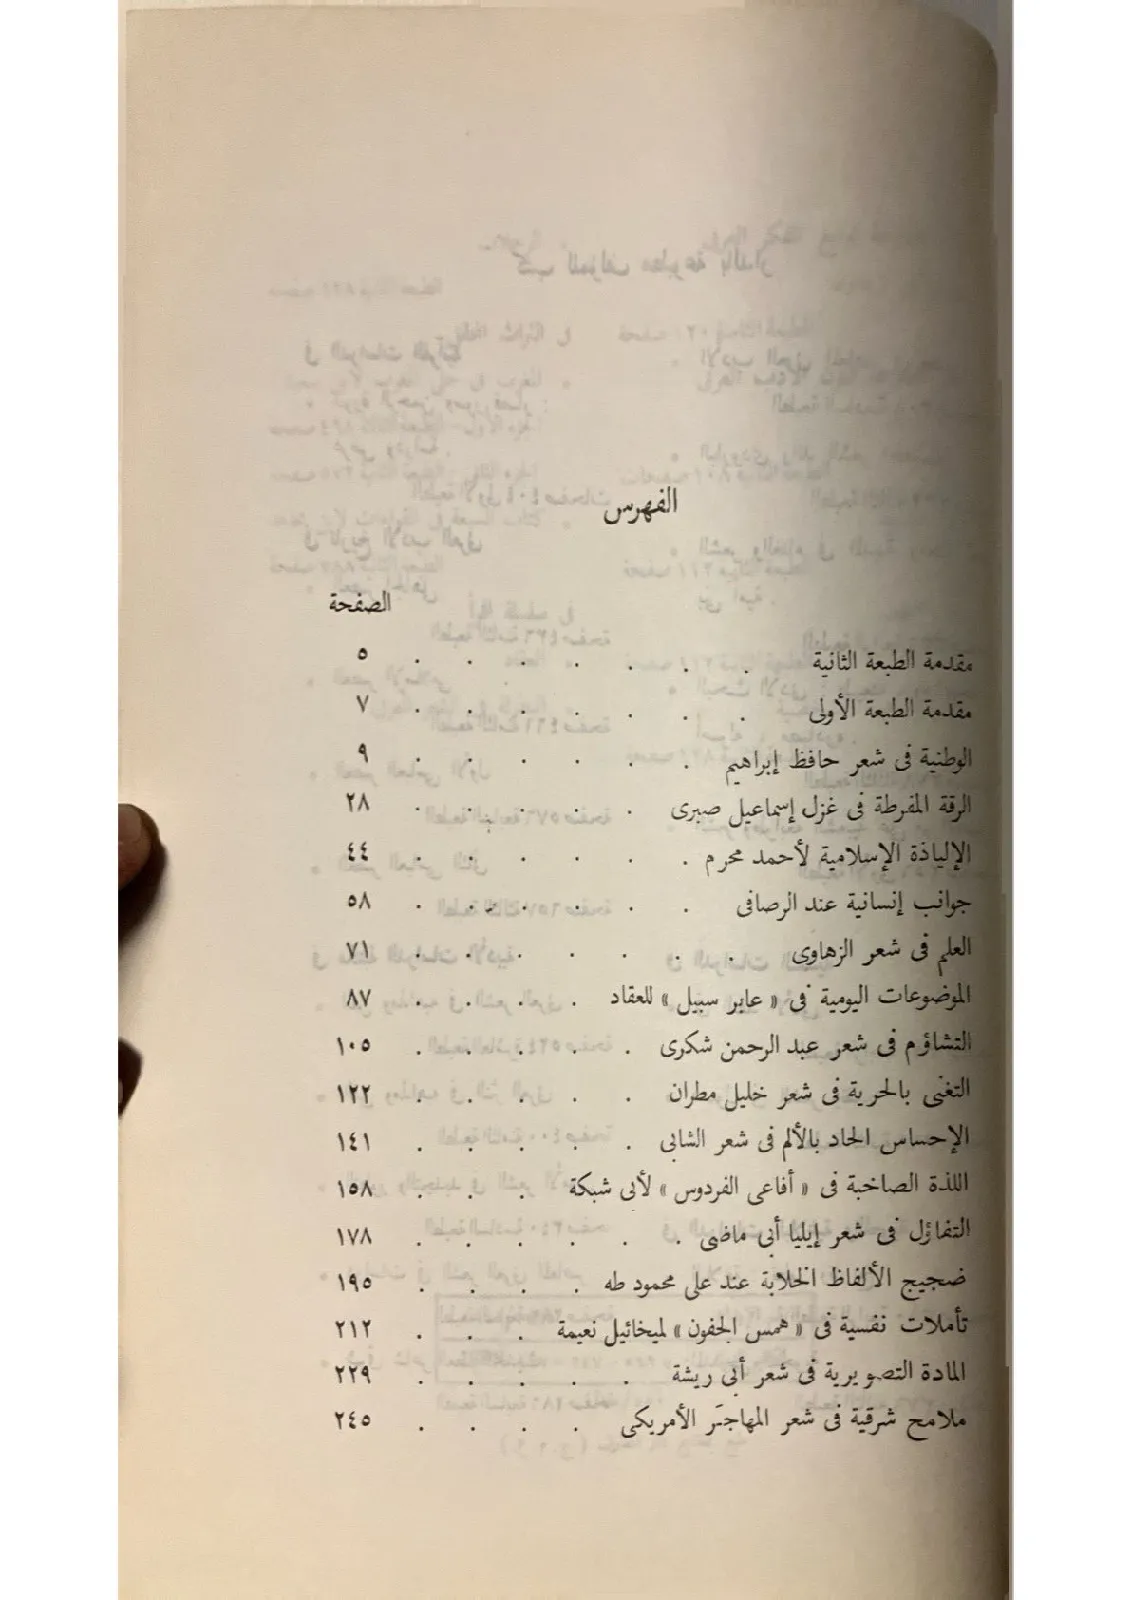 الفهرس
الصفحة
مقدمة الطبعة الثانية . . . . . . . ٥
مقدمة الطبعة الأولى . . . . . . . ٧
الوطنية فى شعر حافظ إبراهيم . . . . . . ٩
الرقة المفرطة فى غزل إسماعيل صبرى . . . . . ٢٨
الإلياذة الإسلامية لأحمد محرم . . . . . . ٤٤
جوانب إنسانية عند الرصافى . . . . . . ٥٨
العلم فى شعر الزهاوى . . . . . . . ٧١
الموضوعات اليومية فى « عابر سبيل » للعقاد . . . . ٨٧
التشاؤم فى شعر عبد الرحمن شكرى . . . . . ١٠٥
التغنى بالحرية فى شعر خليل مطران . . . . . ١٢٢
الإحساس الحاد بالألم فى شعر الشابى . . . . . ١٤١
اللذة الصاخبة فى « أفاعى الفردوس » لأبى شبكة . . . ١٥٨
التفاؤل فى شعر إيليا أبى ماضى . . . . . . ١٧٨
ضجيج الألفاظ الخلابة عند على محمود طه . . . . ١٩٥
تأملات نفسية فى « همس الجفون » لميخائيل نعيمة . . . ٢١٢
المادة التصويرية فى شعر أبى ريشة . . . . . ٢٢٩
ملامح شرقية فى شعر المهاجر الأمريكى . . . . ٢٤٥